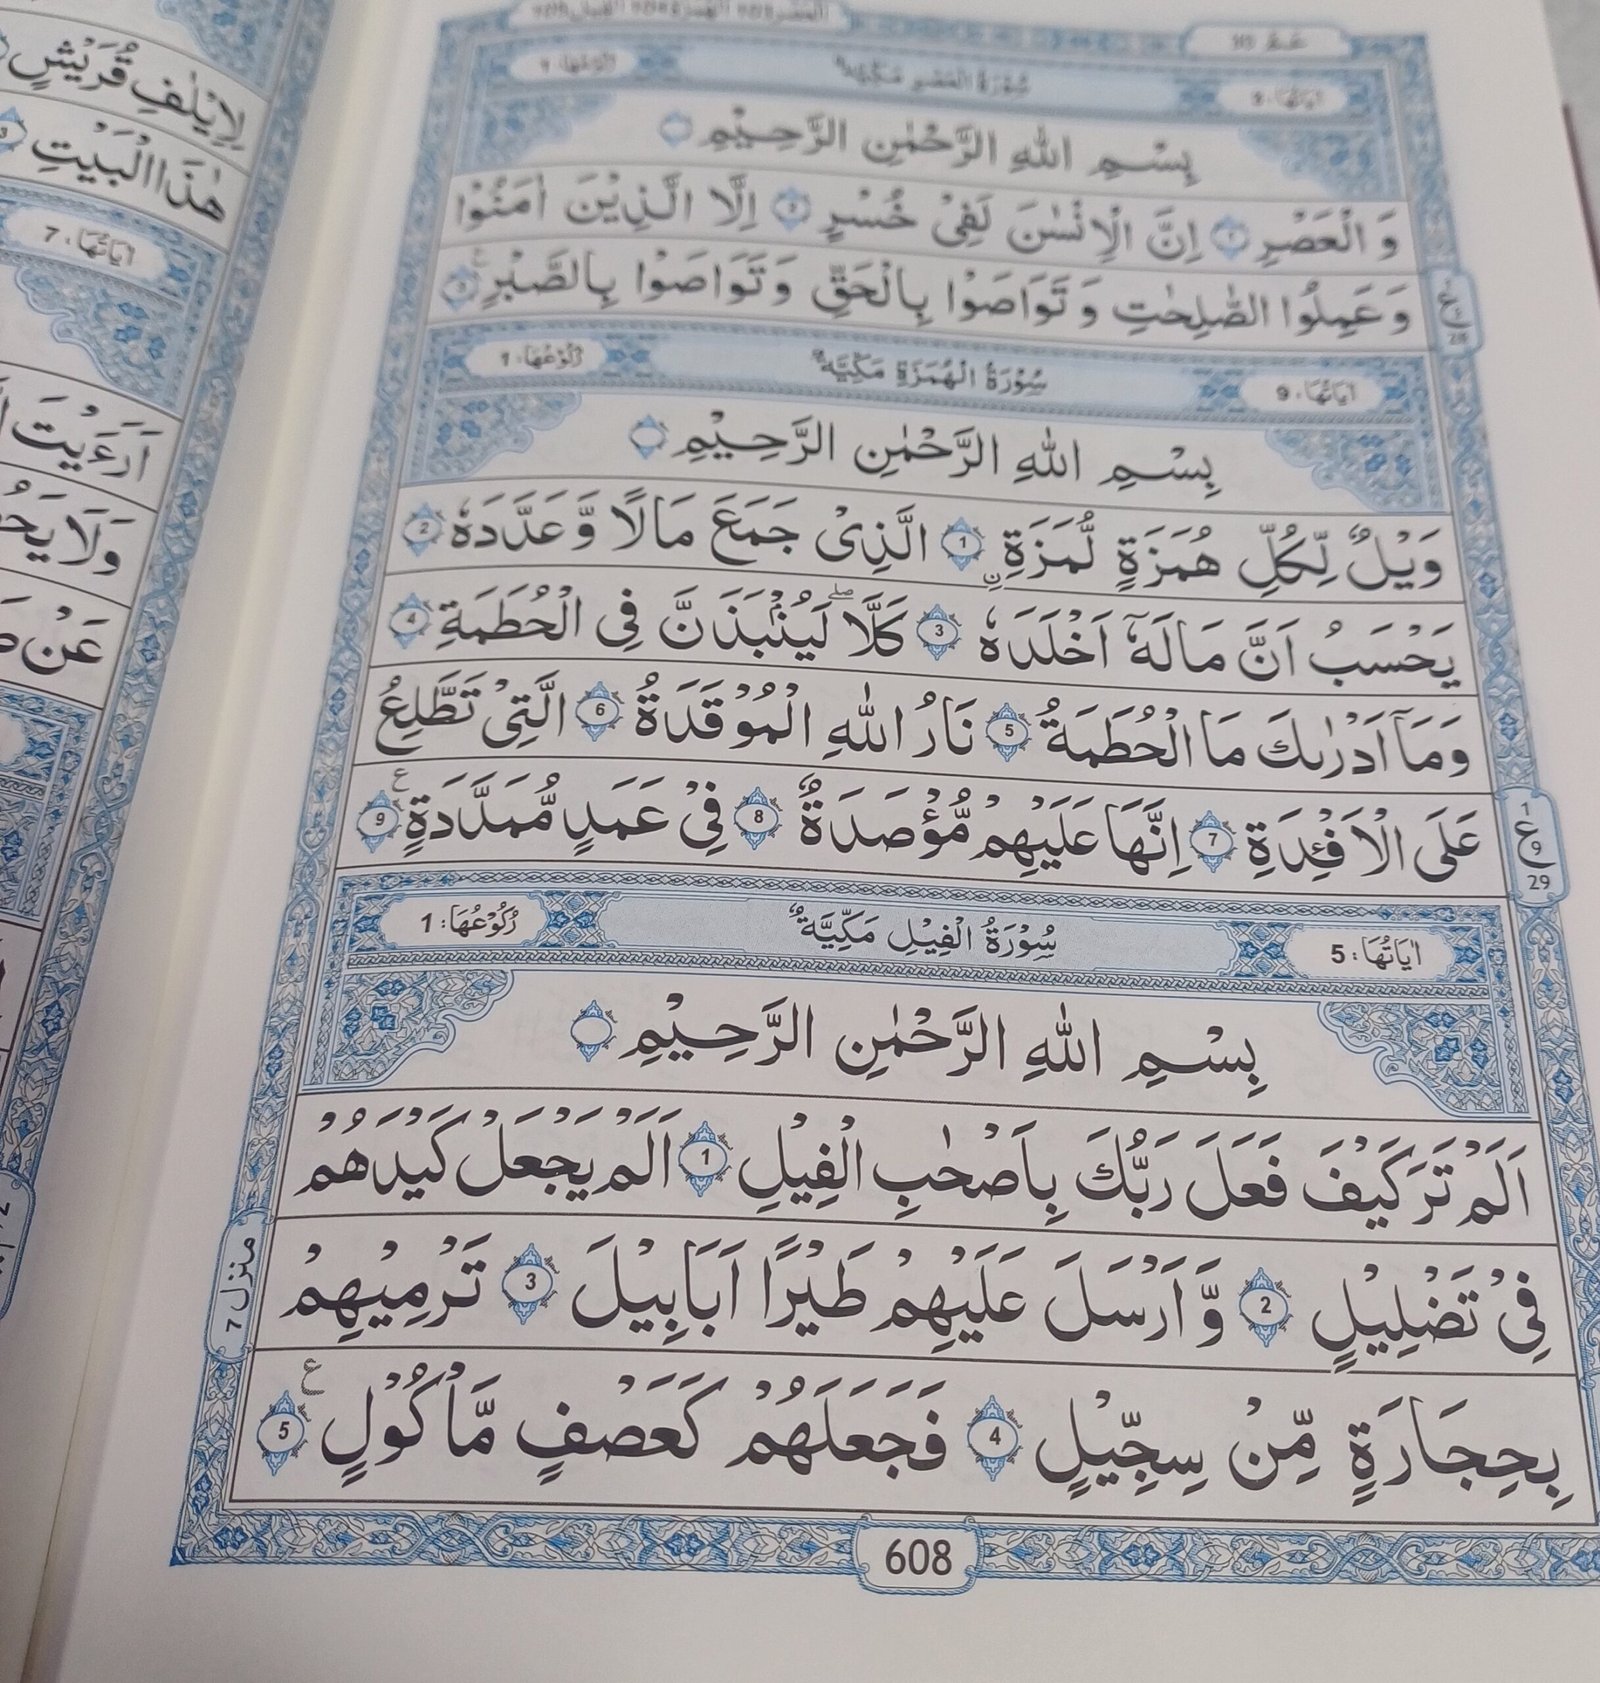 العصر 103 الهمزة 104 الفيل 105
عم 30
اٰيَاتُهَا: 3 سُوْرَةُ الْعَصْرِ مَكِّيَّةٌ رُكُوْعُهَا: 1
بِسْمِ اللّٰهِ الرَّحْمٰنِ الرَّحِيْمِ
وَ الْعَصْرِ 1 اِنَّ الْاِنْسٰنَ لَفِيْ خُسْرٍ 2 اِلَّا الَّذِيْنَ اٰمَنُوْا
وَ عَمِلُوا الصّٰلِحٰتِ وَ تَوَاصَوْا بِالْحَقِّ وَ تَوَاصَوْا بِالصَّبْرِ 3
اٰيَاتُهَا: 9 سُوْرَةُ الْهُمَزَةِ مَكِّيَّةٌ رُكُوْعُهَا: 1
بِسْمِ اللّٰهِ الرَّحْمٰنِ الرَّحِيْمِ
وَيْلٌ لِّكُلِّ هُمَزَةٍ لُّمَزَةِ 1 الَّذِيْ جَمَعَ مَالًا وَّ عَدَّدَهٗ 2
يَحْسَبُ اَنَّ مَالَهٗٓ اَخْلَدَهٗ 3 كَلَّا لَيُنْۢبَذَنَّ فِى الْحُطَمَةِ 4
وَمَآ اَدْرٰىكَ مَا الْحُطَمَةُ 5 نَارُ اللّٰهِ الْمُوْقَدَةُ 6 الَّتِيْ تَطَّلِعُ
عَلَى الْاَفْـِٕدَةِ 7 اِنَّهَا عَلَيْهِمْ مُّؤْصَدَةٌ 8 فِيْ عَمَدٍ مُّمَدَّدَةٍ 9
1 ع 9 29
اٰيَاتُهَا: 5 سُوْرَةُ الْفِيْلِ مَكِّيَّةٌ رُكُوْعُهَا: 1
بِسْمِ اللّٰهِ الرَّحْمٰنِ الرَّحِيْمِ
اَلَمْ تَرَ كَيْفَ فَعَلَ رَبُّكَ بِاَصْحٰبِ الْفِيْلِ 1 اَلَمْ يَجْعَلْ كَيْدَهُمْ
فِيْ تَضْلِيْلٍ 2 وَّ اَرْسَلَ عَلَيْهِمْ طَيْرًا اَبَابِيْلَ 3 تَرْمِيْهِمْ
بِحِجَارَةٍ مِّنْ سِجِّيْلٍ 4 فَجَعَلَهُمْ كَعَصْفٍ مَّاْكُوْلٍ 5
منزل 7
608
لِاِيْلٰفِ قُرَيْشٍ
هٰذَا الْبَيْتِ
اٰيَاتُهَا: 7
اَرَءَيْتَ
وَلَا
عَنْ